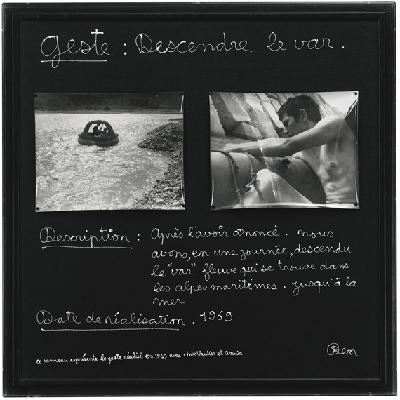 Geste : Descendre le var.
Description : Après l'avoir annoncé. nous
avons, en une journée, descendu
le "var" fleuve qui se trouve dans
les alpes maritimes. jusqu'à la
mer
Date de réalisation. 1959
ce panneau représente le geste réalisé en 1959 avec et
Ben